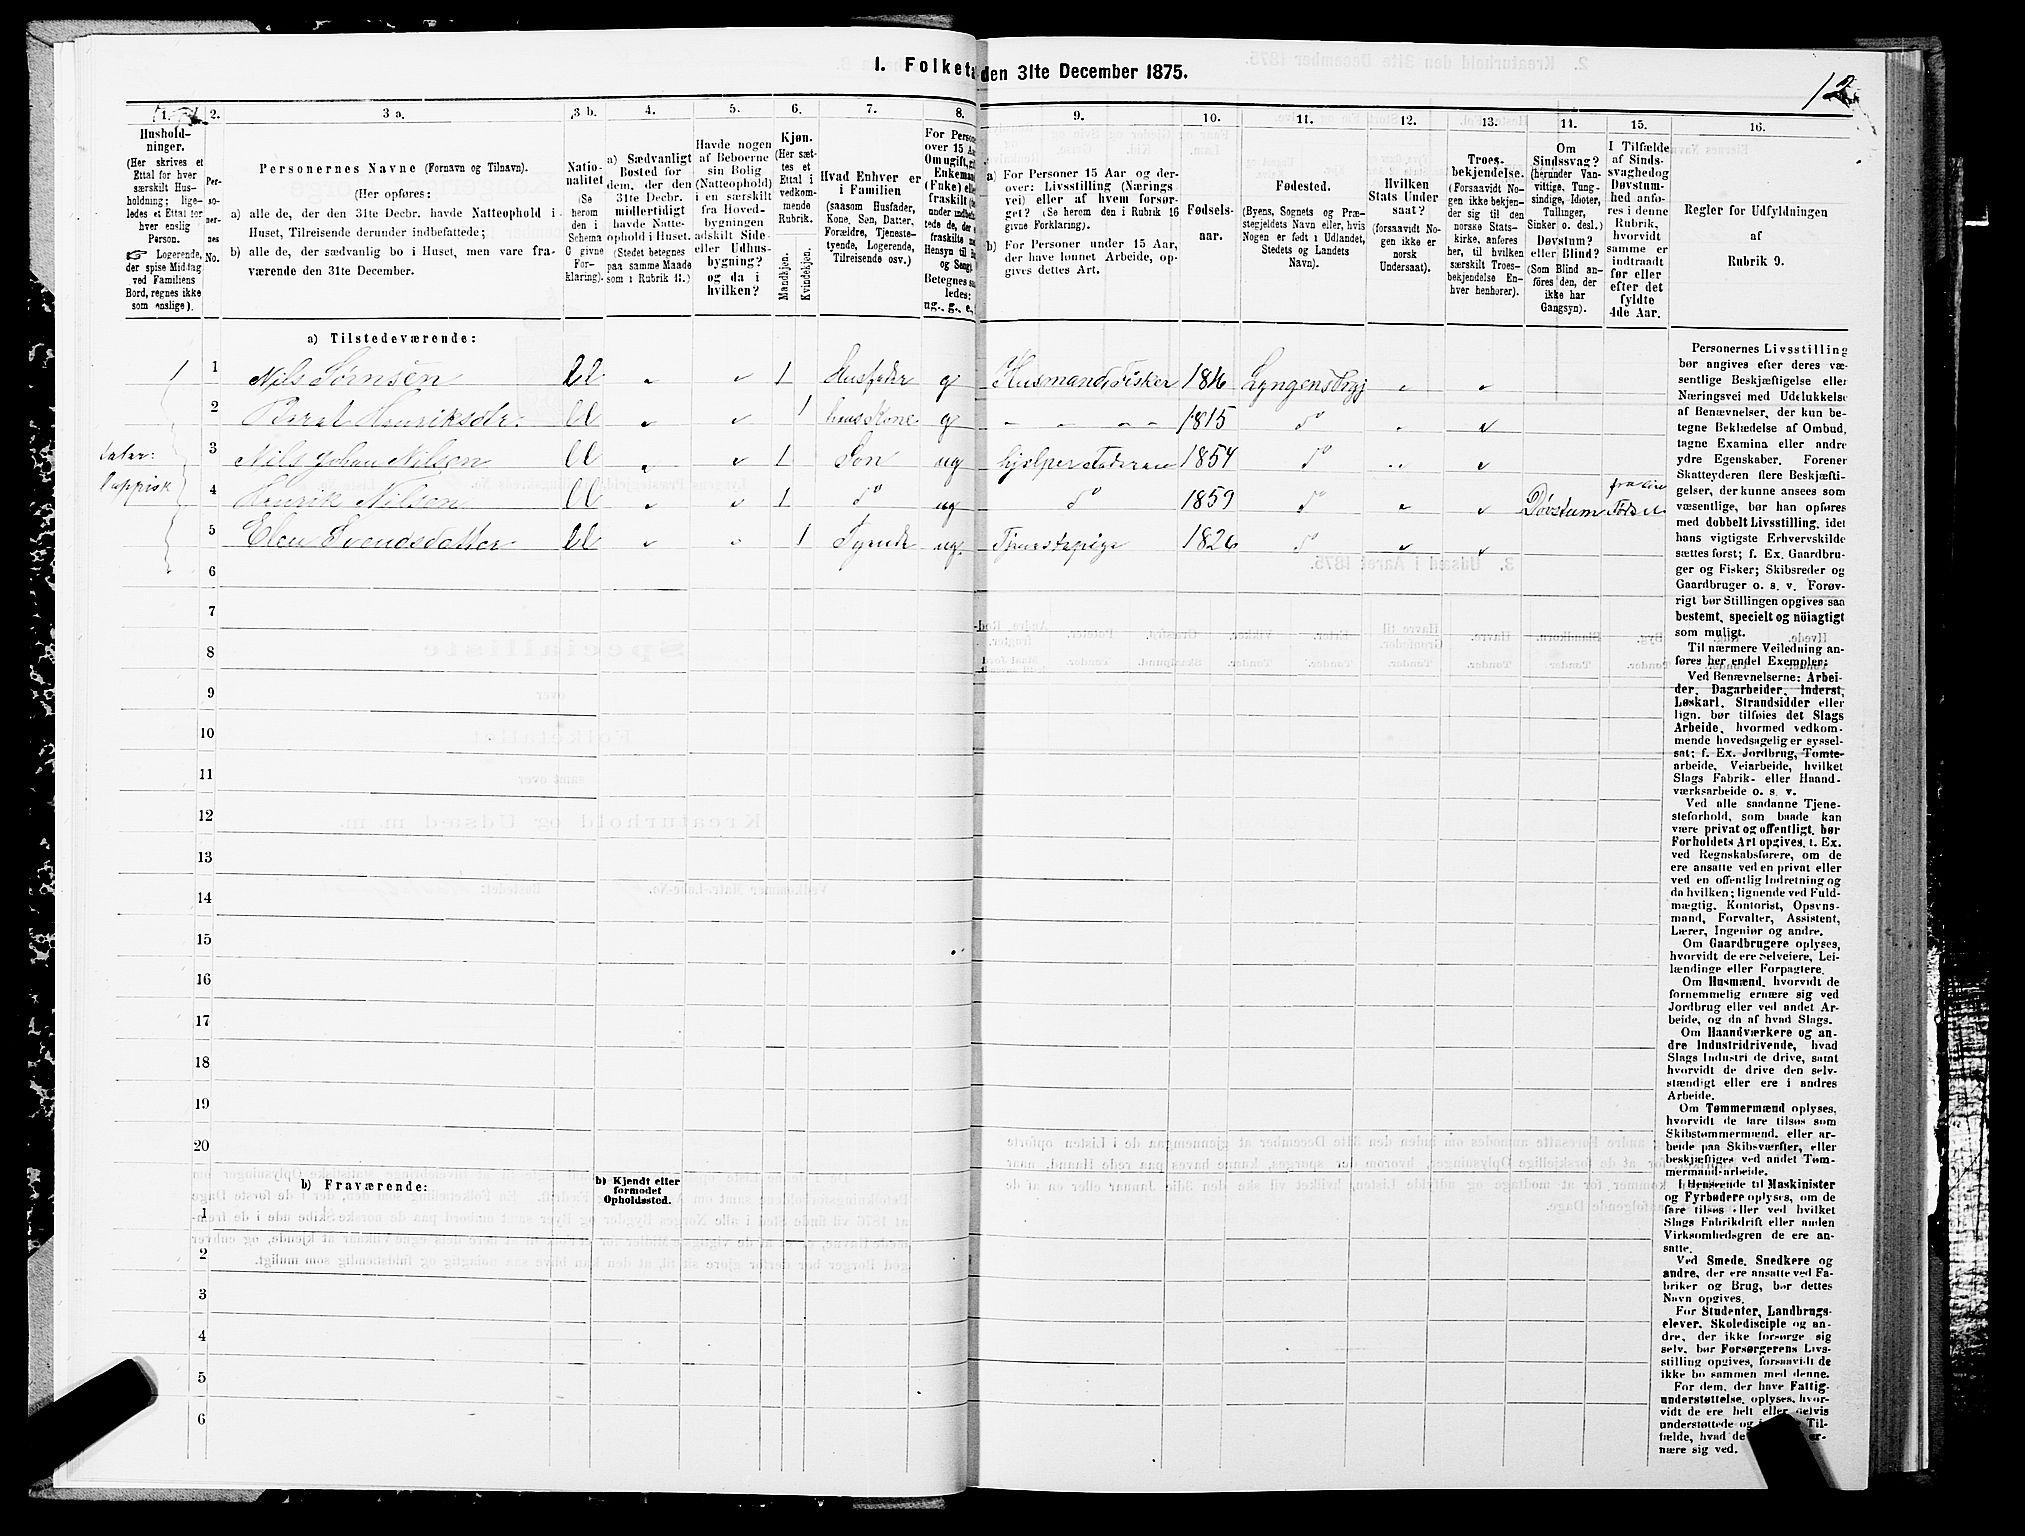 1. Folketa
den 31te December 1875.
12
1.
2.
3 a.
3 b.
4.
5.
6.
7.
8.
9.
10.
11.
12.
13.
14.
15.
16.
Hushold-
ninger.
(Her skrives et
Ettal for hver
særskilt Hus-
holdning; lige-
ledes et Ettal for
hver enslig
Person.
☞ Logerende,
der spise Middag
ved Familiens
Bord, regnes ikke
som enslige).
Per-
so-
ner-
nes
No.
Personernes Navne (Fornavn og Tilnavn).
(Her opføres:
a) alle de, der den 31te Decbr. havde Natteophold i
Huset, Tilreisende derunder indbefattede;
b) alle de, der sædvanlig bo i Huset, men vare fra-
værende den 31te December.
Natio-
nalitet
(Se
herom
den i
Schema
G givne
For-
klaring).
a) Sædvanligt
Bosted for
dem, der den
31te Decbr.
midlertidigt
havde Natte-
ophold i Huset.
(Stedet betegnes
paa samme Maade
som i Rubrik 11.)
Havde nogen
af Beboerne
sin Bolig
(Natteophold)
i en særskilt
fra Hoved-
bygningen
adskilt Side-
eller Udhus-
bygning?
og da i
hvilken?
Kjøn.
(Her sæt-
tes et
Ettal i
vedkom-
mende
Rubrik.
Mandkjøn.
Kvindekjøn.
Hvad Enhver er
i Familien
(saasom Husfader,
Kone, Søn, Datter,
Forældre, Tjeneste-
tyende, Logerende,
Tilreisende osv.)
For Persone
over 15 Aar
Om ugift, gi
Enkemand
(Enke) eller
fraskilt
Betegnes saa
ledes:
ug., g., e.,
a) For Personer 15 Aar og der-
over: Livsstilling (Nærings-
vei) eller af hvem forsør-
get? (Se herom den i Rubrik 16
givne Forklaring).
b) For Personer under 15 Aar,
der have lønnet Arbeide, op-
gives dettes Art.
Fødsels-
aar.
Fødested.
(Byens, Sognets og Præ-
stegjeldets Navn eller, hvis
Nogen er født i Udlandet,
Stedets og Landets
Navn).
Hvilken
Stats Under
saat?
(forsaavidt No-
gen ikke er
norsk
Undersaat).
Troes-
bekjendelse.
(Forsaavidt No-
gen ikke bekjen-
der sig til den
norske Stats-
kirke, anføres
her, til hvilken
særskilt Troes-
bekjendelse En-
hver henhører).
Om
Sindssvag?
(herunder Van-
vittige, Tung-
sindige, Idioter,
Tullinger,
Sinker o. desl.)
Døvstum?
eller Blind?
(Som Blind an-
føres den, der
ikke har
Gangsyn).
I Tilfælde
af Sinds-
svaghed og
Døvstum-
hed anfø-
res i denne
Rubrik,
hvorvidt
samme er
indtraadt
før eller
efter det
fyldte
4de Aar.
Regler for Udfyldningen
af
Rubrik 9.
a) Tilstedeværende:
1 1 Nils Sørnsen ll 1 Husfader g Husmand Fisker 1816 Lyngens Prgj
2 Beret Henriksdtr. ll 1 hans Kone g 1815 do
taler: 3 Nils Johan Nilsen ll 1 Søn ug hjelper Faderen 1854 do
lappisk 4 Henrik Nilsen ll 1 do ug do 1859 do Døvstum Fødsel
5 Elen Svendsdatter ll 1 Tyende ug. Tjenestepige 1826 do
6
7
8
9
10
11
12
13
14
15
16
17
18
19
20
b) Fraværende:
b) Kjendt eller
formodet
Opholdssted.
1
2
3
4
5
6
Personernes Livsstilling
bør angives efter deres væ-
sentlige Beskjæftigelse eller
Næringsvei med Udelukkelse
af Benævnelser, der kun be-
tegne Beklædelse af Ombud,
tagne Examina eller andre
ydre Egenskaber. Forener
Skatteyderen flere Beskjæfti-
gelser, der kunne ansees som
væsentlige, bør han opføres
med dobbelt Livsstilling, idet
hans vigtigste Erhvervskilde
sættes først; f. Ex. Gaardbru-
ger og Fisker; Skibsreder og
Gaardbruger o. s. v. Forøv-
rigt bør Stillingen opgives saa
bestemt, specielt og nöiagtigt
som muligt.
Til nærmere Veiledning an-
føres her endel Exempler:
Ved Benævnelserne: Arbei-
der, Dagarbeider, Inderst,
Løskarl, Strandsidder eller
lign. bør tilføies det Slags
Arbeide, hvormed vedkom-
mende hovedsagelig er syssel-
sat; f. Ex. Jordbrug, Tomte-
arbeide, Veiarbeide, hvilket
Slags Fabrik- eller Haand-
værksarbeide o. s. v.
Ved alle saadanne Tjene-
steforhold, som baade kan
være privat og offentligt, bør
Forholdets Art opgives, f. Ex.
ved Regnskabsførere, om de
ere ansatte ved en privat eller
ved en offentlig Indretning og
da hvilken; lignende ved Fuld-
mægtig, Kontorist, Opsyns-
mand, Forvalter, Assistent,
Lærer, Ingeniør og andre.
Om Gaardbrugere oplyses,
hvorvidt de ere Selveiere, Lei-
lændinge eller Forpagtere.
Om Husmænd, hvorvidt de
fornemmelig ernære sig ved
Jordbrug eller ved andet Ar-
beide, og da af hvad Slags.
Om Haandværkere og an-
dre Industridrivende, hvad
Slags Industri de drive, samt
hvorvidt de drive den selv-
stændigt eller ere i andres
Arbeide.
Om Tømmermænd oplyses,
hvorvidt de fare tilsøs som
Skibstømmermænd, eller ar-
beide paa Skibsværfter, eller
beskjæftiges ved andet Tøm-
mermandsarbeide.
I Henseende til Maskinister
og Fyrbødere oplyses, om de
fare tilsøs eller ved hvilket
Slags Fabrikdrift eller anden
Virksomhedsgren de ere an-
satte.
Ved Smede, Snedkere og
andre, der ere ansatte ved Fa-
briker og Brug, bør dettes
Navn opgives.
For Studenter, Landbrugs-
elever, Skoledisciple og an-
dre, der ikke forsørge sig
selv, bør Forsørgerens Livs-
stilling opgives, forsaavidt de
ikke bo sammen med denne.
For dem, der have Fattig-
understøttelse, oplyses, hvor-
vidt de ere helt eller delvis
understøttede og i Til-
fælde, hvad de er-
nære sig ved.